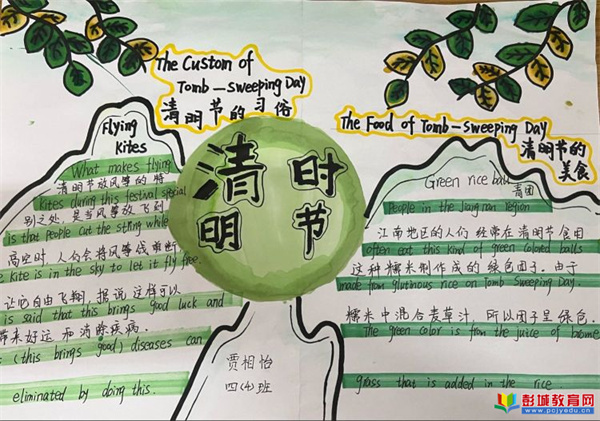 The Custom of
Tomb-sweeping Day
清明节的习俗
The Food of Tomb-sweeping Day
清明节的
美食
清明
时节
Flying
Kites
What makes flying
清明节放风筝的特
kites during this festival special
别之处，是当风筝放飞到
is that people cut the string while
高空时，人们会将风筝线剪断
e kite is in the sky to let it fly free.
让它自由飞翔，据说这样可以
is said that this brings good luck and
带来好运和消除疾病。
(this brings good) diseases can
eliminated by doing this.
Green rice ball
青团
People in the Jiang nan region
江南地区的人们经常在清明节食用
often eat this kind of green colored balls
这种糯米制作成的绿色团子。由于
made from glutinous rice on Tomb Sweeping Day.
糯米中混合麦草汁，所以团子呈绿色.
The green color is from the juice of brome
grass that is added in the rice.
贾相怡
四(4)班
彭城教育网
www.pcjyedu.cn